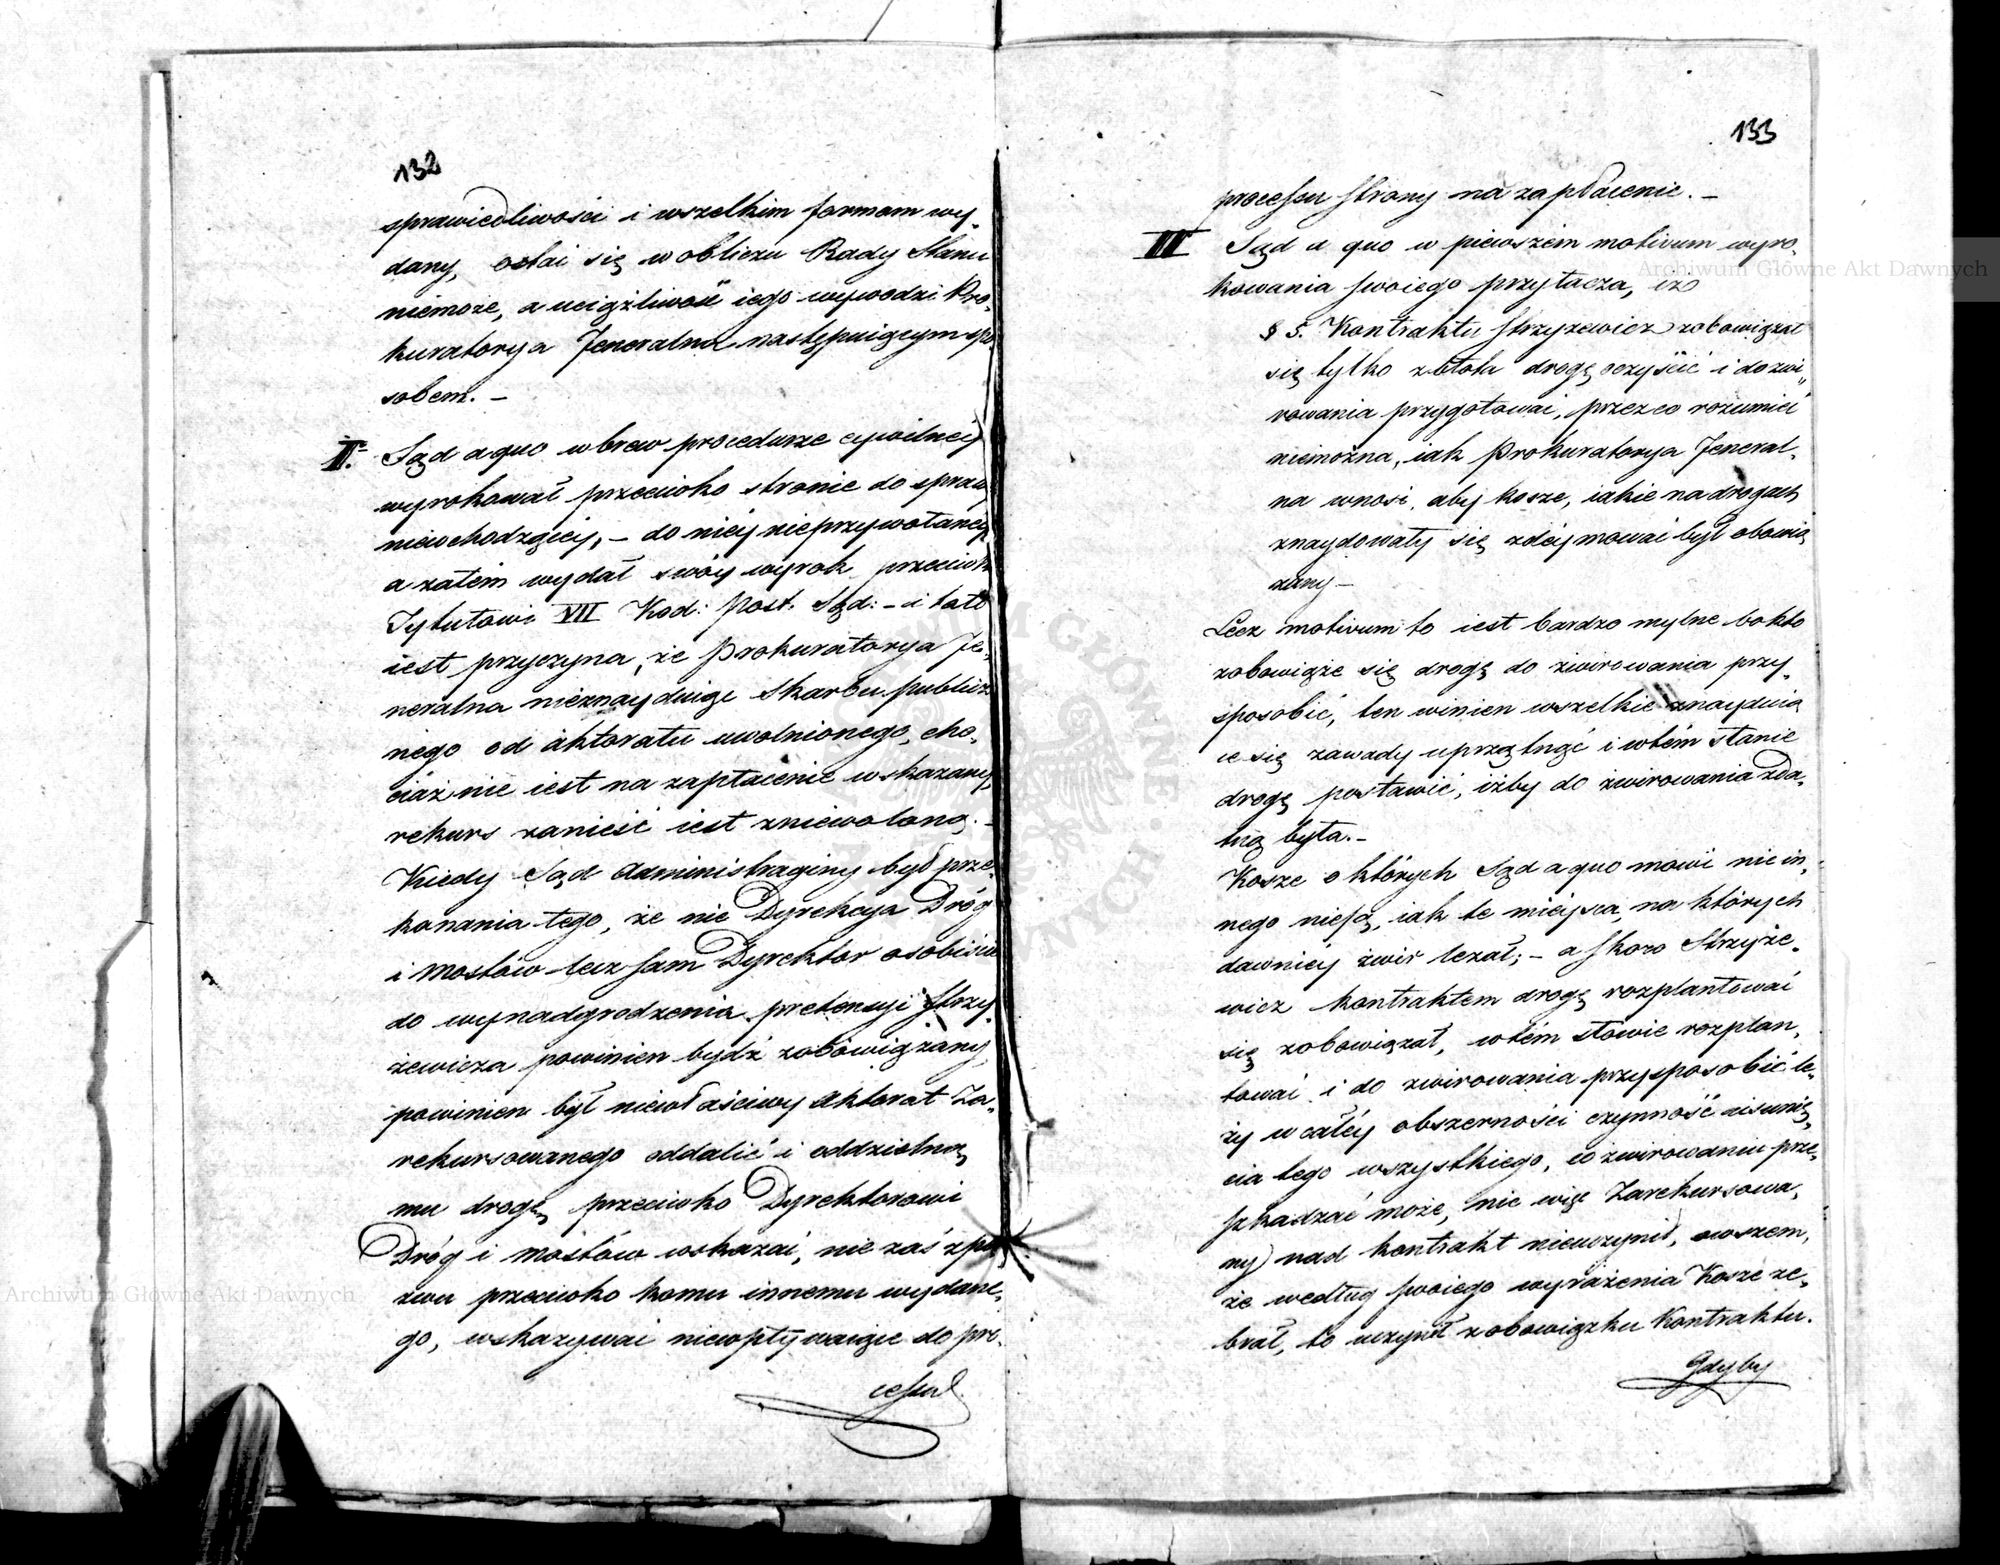 132
sprawiedliwości i wszelkim formom wy-
dany, ostai się w obliczu Rady Stanu
niemoże, a uciążliwość iego wywodzi Pro-
kuratorya Jeneralna następuiącym spo
sobem. –
II. Sąd a quo wbrew procedurze cywilnéy
wyrokował przeciwko stronie do sprawy
niewchodzącéy, – do niéy nieprzywołanéy
a zatém wydał swóy wyrok przeciwko
Tytułowi VII Kod: Post. Sąd: – i tato
iest przyczyna, że Prokuratorya Je-
neralna nieznayduiąc Skarbu publicz
nego od aktoratu uwolnionego, cho-
ciaż nie iest na zapłacenie wskazany,
rekurs zanieść iest zniewoloną. –
Kiedy Sąd Administracyiny był prze-
konania tego, że nie Dyrekcya Dróg
i Mostów lecz sam Dyrektor osobiście
do wynadgrodzenia pretensyi Strzy-
żewicza powinien bydź zobowiązany,
powinien był niewłaściwy aktorat Za-
rekursowanego oddalić i oddzielną
mu drogę przeciwko Dyrektorowi
Dróg i Mostów wskazać, nie zaś z po
zwu przeciwko komu innemu wydane-
go, wskazywać niewpływaiące do pro-
cessu
133
processu strony na zapłacenie. –
III Sąd a quo w pierwszém motivum wyro-
kowania swoiego przytacza, iż
§ 5. Kontraktu Strzyżewicz zobowiązał
się tylko z błota drogę oczyścić i do żwi-
rowania przygotować, przez co rozumieć
niemożna, iak Prokuratorya Jeneral-
na wnosi, aby kosze, iakie na drogach
znaydowały się zdéymować był obowią
zany –
Lecz motivum to iest bardzo mylne bo kto
zobowiąże się drogę do żwirowania przy-
sposobić, ten winien wszelkie znayduią
ce się zawady uprzątnąć i w tém stanie
drogę postawić, iżby do żwirowania zda-
tną była. –
Kosze o których Sąd a quo mówi nic in-
nego niesą, iak te mieysca, na których
dawniéy żwir leżał; – a skoro Strzyże-
wicz kontraktem drogę rozplantować
się zobowiązał, w tém słowie rozplan-
tować i do żwirowania przysposobić le-
ży w całéy obszerności czynność usunię-
cia tego wszystkiego, co żwirowaniu prze-
szkadzać może, nic więc Zarekursowa-
ny nad kontrakt nieuczynił, owszem,
że według swoiego wyrażenia Kosze ze-
brał, to uczynił z obowiązku Kontraktu.
Gdyby
Archiwum Główne Akt Dawnych
Archiwum Główne Akt Dawnych